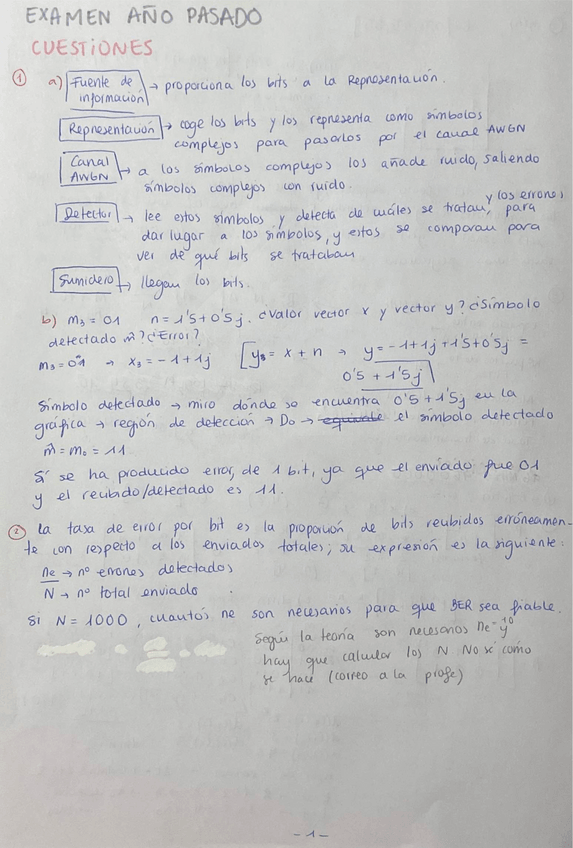 EXAMEN AÑO PASADO
CUESTIONES
① a) Fuente de información → proporciona los bits a la Representación.
Representación → coge los bits y los representa como símbolos
complejos para pasarlos por el canal AWGN
Canal AWGN → a los símbolos complejos los añade ruido, saliendo
símbolos complejos con ruido.
Detector → lee estos símbolos y detecta de cuáles se tratan, y los errores para
dar lugar a los símbolos, y estos se comparan para
ver de qué bits se trataban
Sumidero → llegan los bits.
b) m₃ = 01 n = 1'5 + 0'5j. ¿Valor vector x y vector y? ¿Símbolo
detectado m̂? ¿Error?
m₃ = 01 → x₃ = -1 + 1j [y₃ = x + n → y = -1 + 1j + 1'5 + 0'5j =
0'5 + 1'5j
Símbolo detectado → miro dónde se encuentra 0'5 + 1'5j en la
gráfica → región de detección → D₀ → equivale el símbolo detectado
m̂ = m₀ = 11.
Sí se ha producido error, de 1 bit, ya que el enviado fue 01
y el recibido/detectado es 11.
② la tasa de error por bit es la proporción de bits recibidos erróneamen-
te con respecto a los enviados totales; su expresión es la siguiente:
ne → nº errores detectados
N → nº total enviado
Si N = 1000, cuantos ne son necesarios para que BER sea fiable.
Según la teoría son necesarios ne = 10 y
hay que calcular los N No sé como
se hace (correo a la profe)
- 1 -